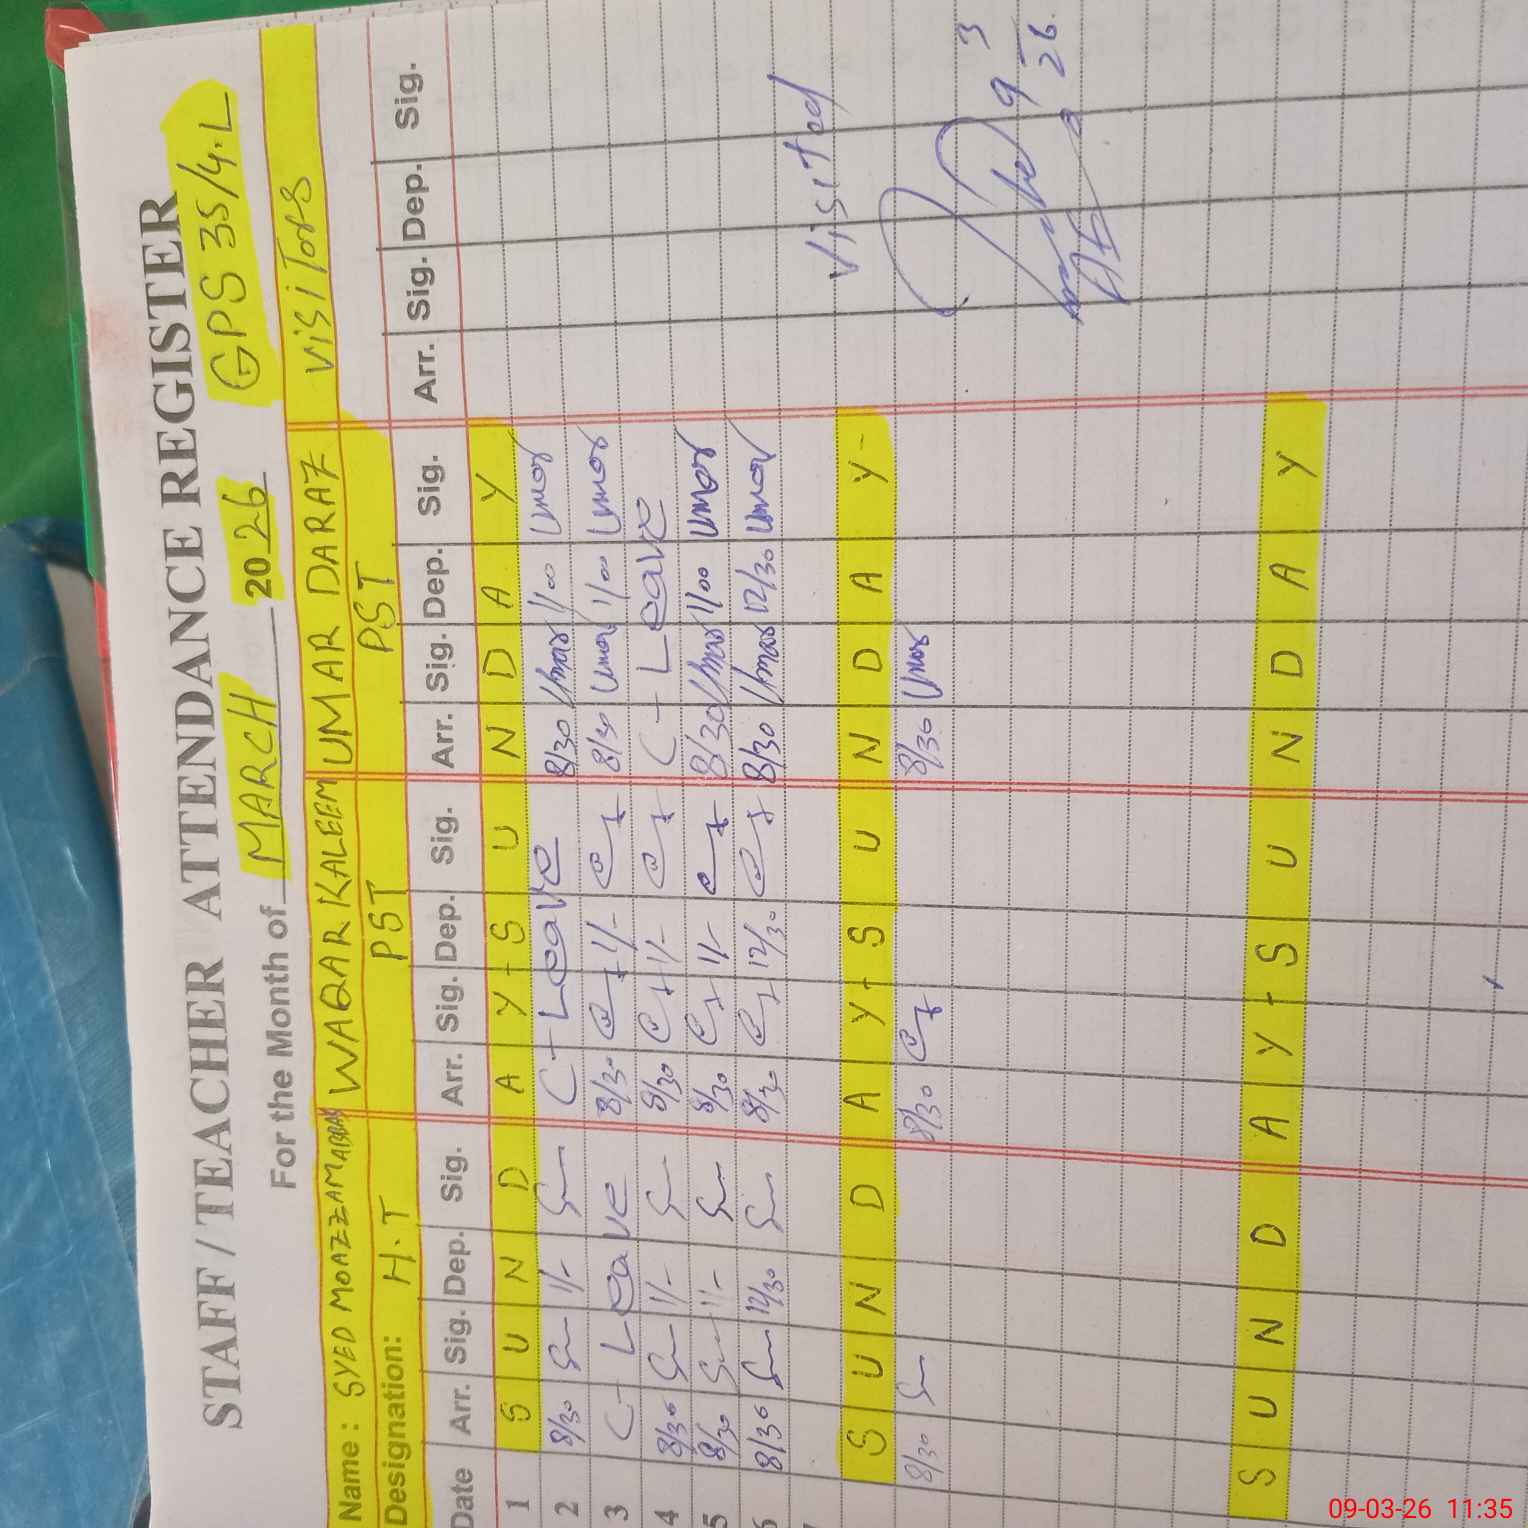 STAFF/TEACHER ATTENDANCE REGISTER
For the Month of MARCH 2026 GPS 35/4.L
Name: SYED MOAZZAM ABBAS WAQAR KALEEM UMAR DARAZ Visitors
Designation: H.T PST PST
Date Arr. Sig. Dep. Sig. Arr. Sig. Dep. Sig. Arr. Sig. Dep. Sig. Arr. Sig. Dep. Sig.
1 S U N D A Y - S U N D A Y
2 8/30 1/- C - Leave 8/30 Umar 1/00 Umar
3 C - Leave 8/30 1/- 8/30 Umar 1/00 Umar
4 8/30 1/- 8/30 1/- C - Leave
5 8/30 1/- 8/30 1/- 8/30 Umar 1/00 Umar
6 8/30 12/30 8/30 12/30 8/30 Umar 12/30 Umar
Visited
S U N D A Y - S U N D A Y -
8/30 8/30 8/30 Umar
9 3
26
S U N D A Y - S U N D A Y
09-03-26 11:35